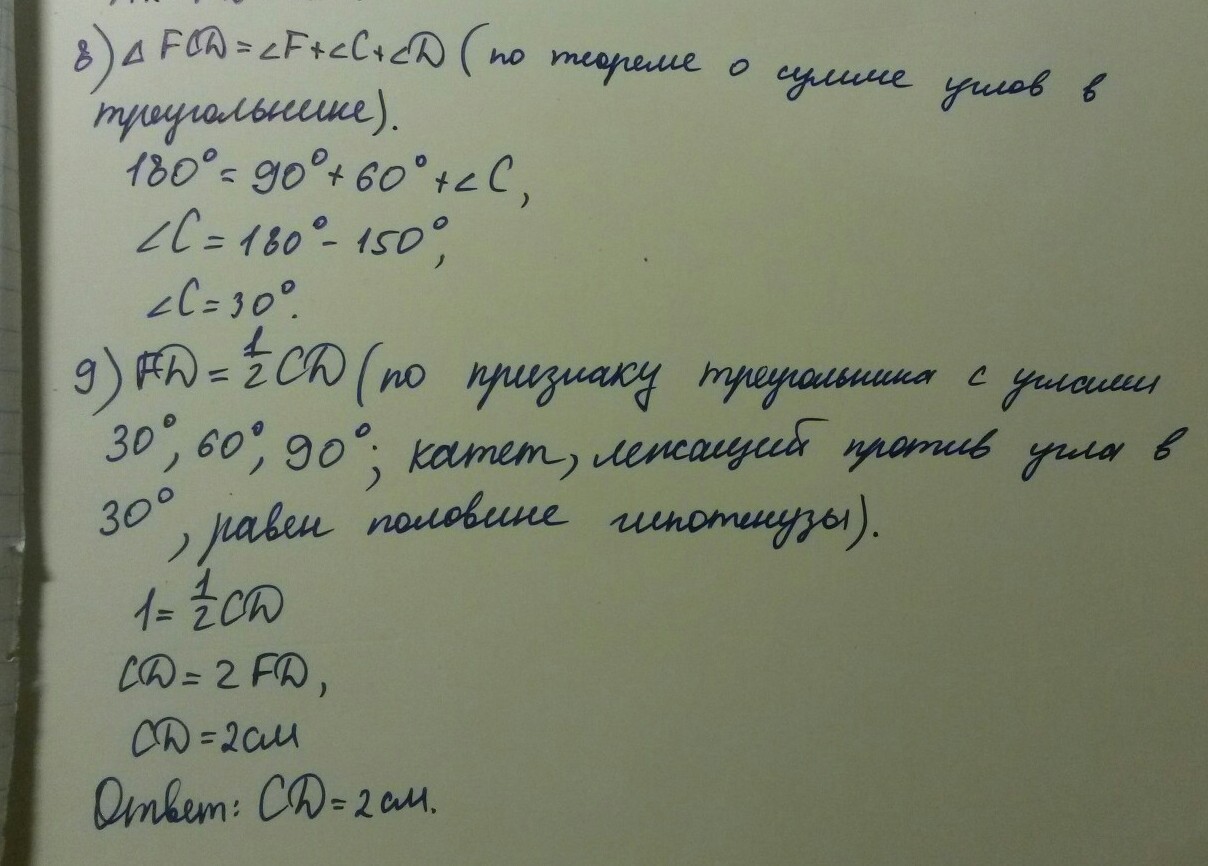 8) △ FCD = ∠F + ∠C + ∠D (по теореме о сумме углов в
треугольнике).
180° = 90° + 60° + ∠C,
∠C = 180° - 150°,
∠C = 30°.
9) FD = 1/2 CD (по признаку треугольника с углами
30°, 60°, 90°; катет, лежащий против угла в
30°, равен половине гипотенузы).
1 = 1/2 CD
CD = 2 FD,
CD = 2 см
Ответ: CD = 2 см.